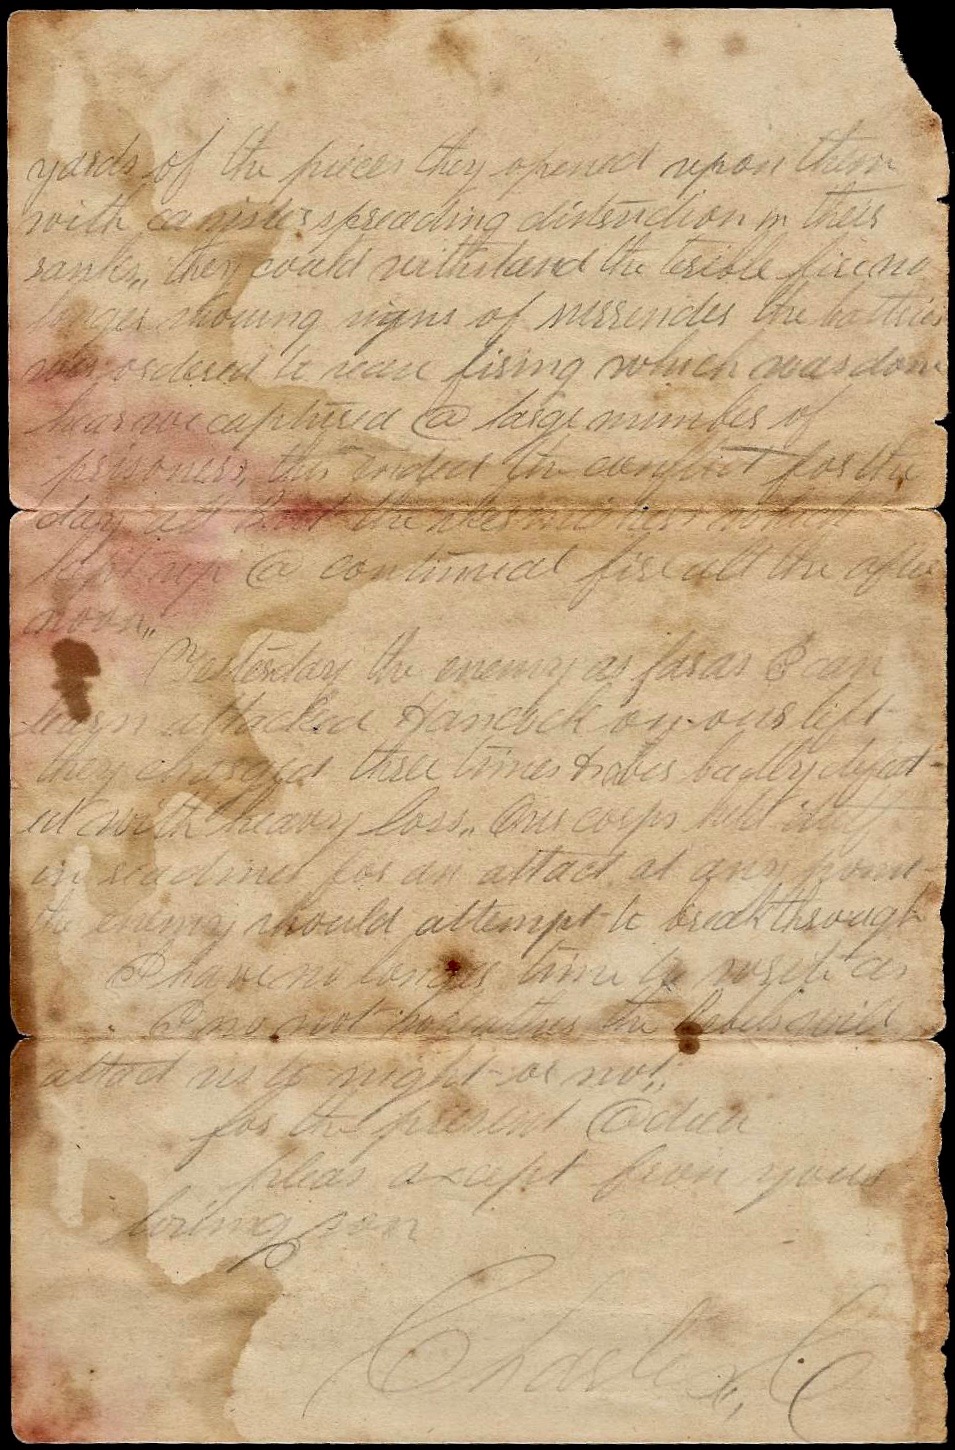 yards of the pieces they opened upon them
with canister spreading distruction in their
ranks,, they could withstand the terible fire no
longer showing signs of surrender the batteries
was ordered to cease firing which was done
hear we captured @ large number of
prisoners, this ended the conflict for the
day all But the skirmishers which
kept up @ continued fire all the after
noon,,
Yesterday the enemy as far as I can
learn attacked Hancock on our left
they charged three times & was badly defeat-
ed with heavy loss,, Our corps held itself
in readiness for an attact at any point
the enemy should attempt to break through
I have no longer time to write as
I no not the Rebels will
attact us to night or not,,
for the present Adieu
pleas except from your
loving son
Charles,, C